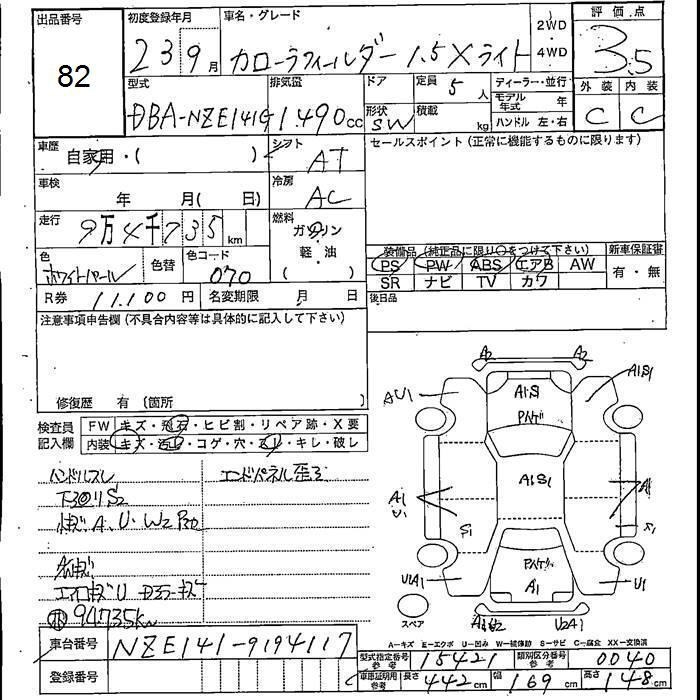 出品番号 82
初度登録年月 23 9月
車名・グレード カローラフィールダー 1.5Xライト
2WD
4WD
評価点 3.5
外装 C 内装 C
型式 DBA-NZE141G
排気量 1.490cc
ドア 形状 SW
定員 5人
積載 kg
ディーラー・並行
モデル年式 年
ハンドル 左・右
車歴 自家用・( )
シフト AT
セールスポイント(正常に機能するものに限ります)
車検 年 月( 日)
冷房 AC
走行 9万4千735km
燃料 ガソリン
軽・油
( )
色 ホワイトパール
色替
色コード 070
装備品(純正品に限り○をつけて下さい)
PS PW ABS エアB AW
SR ナビ TV カワ
新車保証書
有・無
R券 11.100円
名変期限 月 日
後日品
注意事項申告欄(不具合内容等は具体的に記入して下さい)
修復歴 有(箇所 )
検査員記入欄
FW キズ・飛石・ヒビ割・リペア跡・X要
内装 キズ・汚れ・コゲ・穴・スレ・キレ・破レ
ハンドルスレ
エンドパネル歪ミ
下回りS2
A.U.W2
エアロキズU
94735km
A2 A2
AU1 A1S1 A1S1
A1S1
A1
U1
S1
A1
U1A1 U1
U2A1
スペア
A-キズ E-エクボ U-凹み W-補修跡 S-サビ C-腐食 XX-交換済
車台番号 NZE141-9194117
登録番号
型式指定番号 参考 15421
類別区分番号 参考 0040
車庫証明用 参考 長さ 442cm 幅 169cm 高さ 148cm